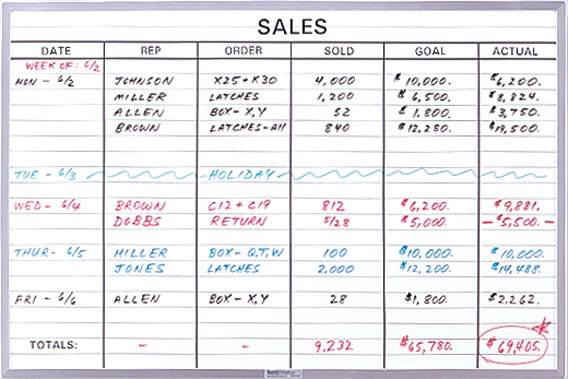 SALES
DATE REP ORDER SOLD GOAL ACTUAL
WEEK OF: 6/2
MON - 6/2 JOHNSON X25 + X30 4,000 $10,000. $6,200.
MILLER LATCHES 1,200 $6,500. $8,824.
ALLEN BOX - X,Y 52 $1,800. $3,750.
BROWN LATCHES-All 840 $12,280. $19,500.
TUE - 6/3 HOLIDAY
WED - 6/4 BROWN C12 + C19 812 $6,200. $9,881.
DOBBS RETURN 5/28 $5,000. -$5,500.-
THUR- 6/5 MILLER BOX - Q,T,W 100 $10,000. $10,000.
JONES LATCHES 2,000 $12,200. $14,488.
FRI - 6/6 ALLEN BOX - X,Y 28 $1,800. $2,262.
TOTALS: - - 9,232 $65,780. $69,405.